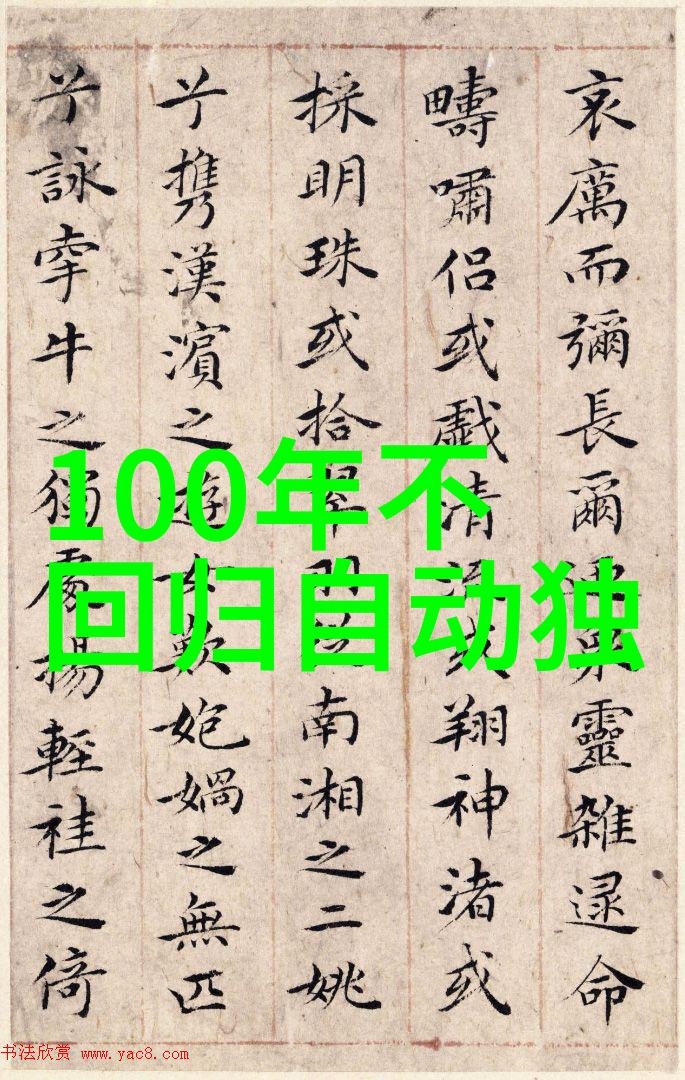 哀厲而彌長爾衆靈雜遝命
疇嘯侣或戲清流或翔神渚或
採明珠或拾翠羽從南湘之二姚
兮攜漢濱之遊女歎媧之無匹
兮詠牽牛之獨處揚輕袿之倚
100年不
回归自动独
书法欣赏 www.yac8.com